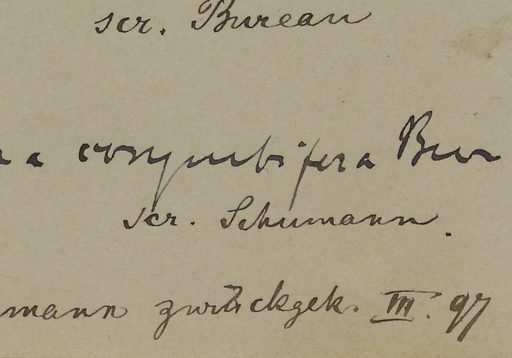 scr. Bureau
a corymbifera Bur
scr. Schumann.
mann zurückgek. III. 97